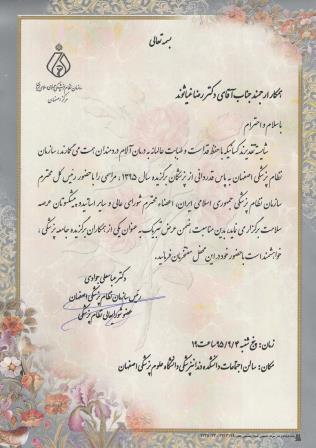 بسمه تعالی
سازمان نظام پزشکی جمهوری اسلامی ایران
مرکز اصفهان
همکار ارجمند جناب آقای دکتر رضا غیاثوند
با سلام و احترام
شایسته تقدیرند کسانیکه با حفظ قداست و طبابت عالمانه به درمان آلام دردمندان همت می گمارند، سازمان
نظام پزشکی اصفهان به پاس قدردانی از پزشکان برگزیده سال ۱۳۹۵، مراسمی را با حضور رئیس کل محترم
سازمان نظام پزشکی جمهوری اسلامی ایران، اعضاء محترم شورای عالی و سایر اساتید و پیشکسوتان عرصه
سلامت برگزاری نماید، بدین مناسبت، ضمن عرض تبریک به عنوان یکی از همکاران برگزیده جامعه پزشکی،
خواهشمند است با حضور خود در این محفل مفتخرمان فرمائید.
دکتر عباسعلی جوادی
رئیس سازمان نظام پزشکی اصفهان
عضو شورایعالی نظام پزشکی
زمان: پنج شنبه ۹۵/۹/۴ ساعت ۱۹
مکان: سالن اجتماعات دانشکده دندانپزشکی دانشگاه علوم پزشکی اصفهان